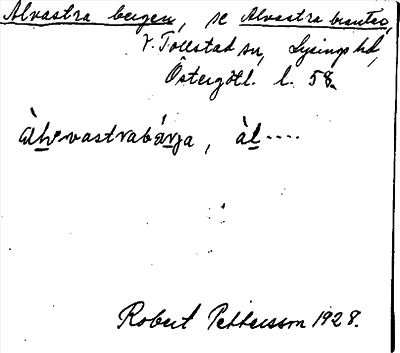 Alvastra bergen, se Alvastra branter,
V. Tollstad sn, Lysings hd,
Östergötl. l. 58.
àlvastrabárja, àl....
Robert Pettersson 1928.